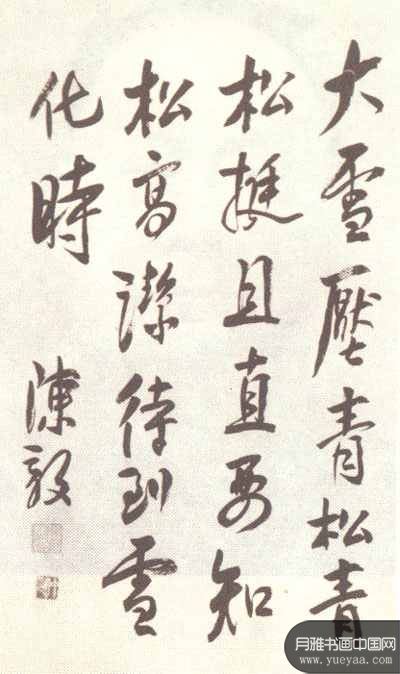 大雪壓青松青
松挺且直要知
松高潔待到雪
化時
陳毅
月雅书画中国网
www.yueyaa.com